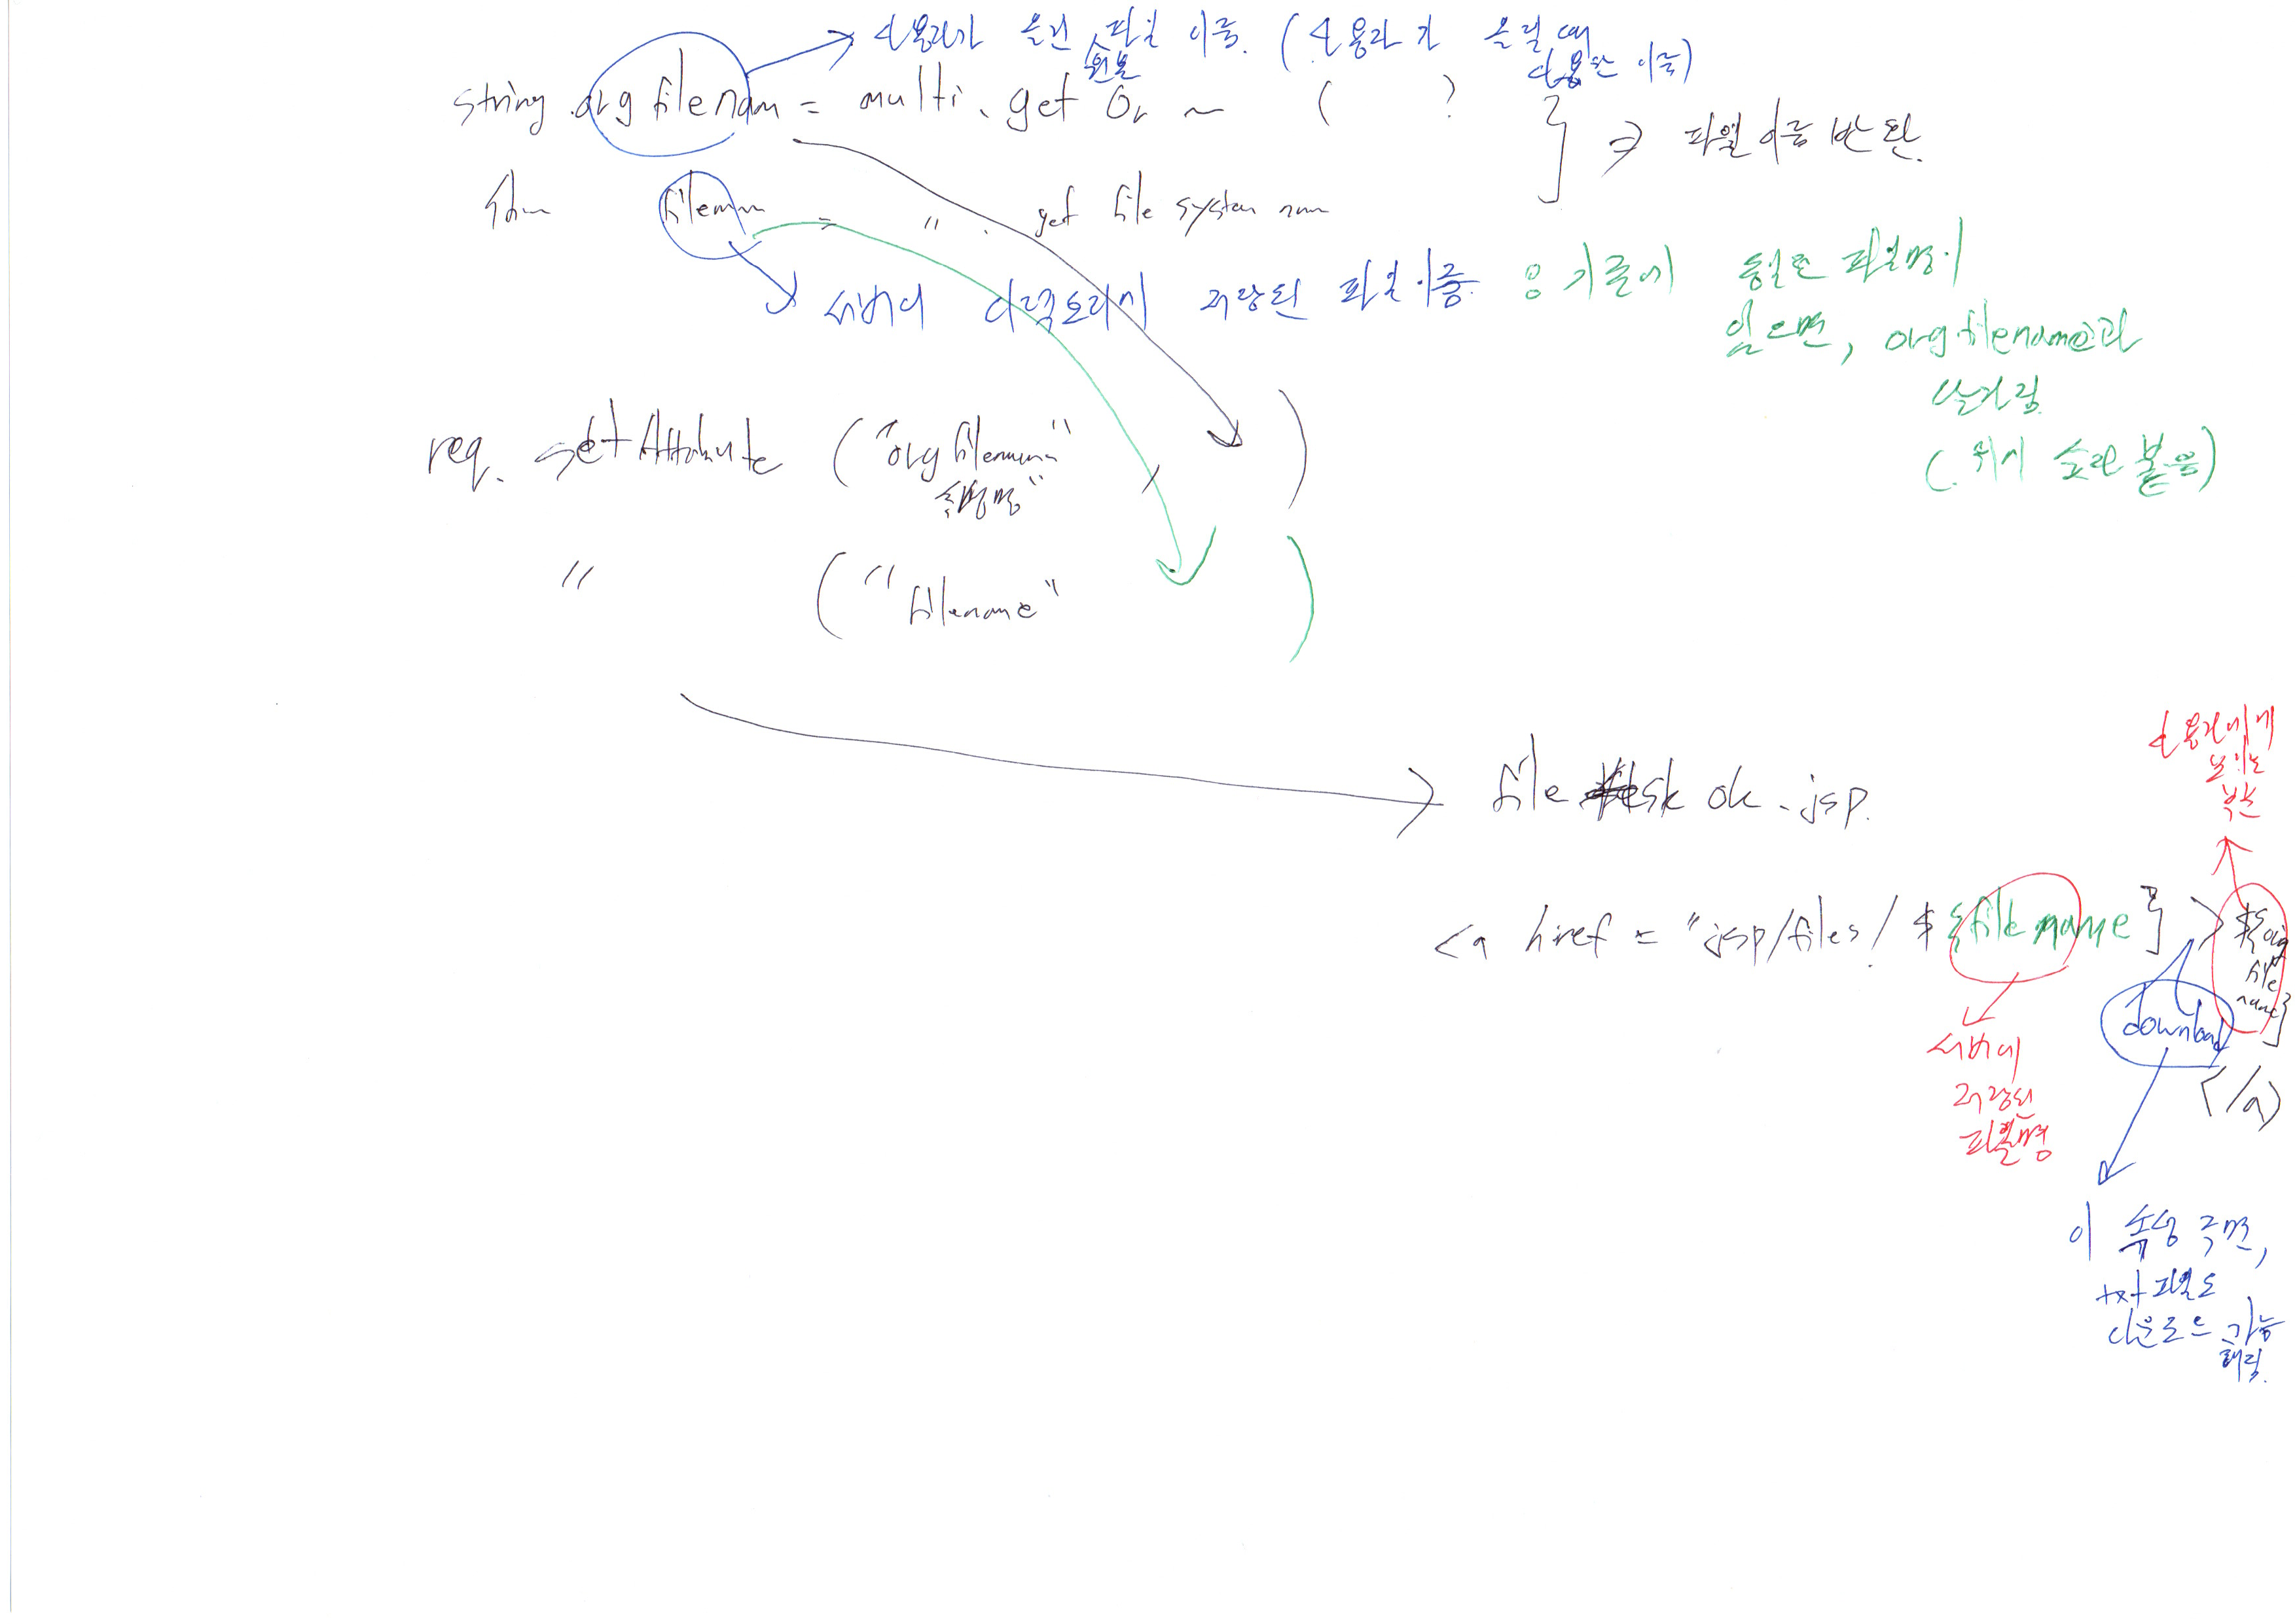 사용자가 올린 파일 이름. (사용자가 올릴 때
원본
사용한 이름)
string orgfilenam = multi. get Or ~ ( ?
} ⇒ 파일이름 반환.
filenam = " . get file system nam
서버에 디렉토리에 저장된 파일이름
기존에 동일한 파일명이
있으면, orgfilename과
달라짐.
(뒤에 숫자 붙음)
req. setAttribute ("orgfilenam" , )
속성명"
" ("filename" )
file ok.jsp.
사용자에게
보이는
부분
<a href = "jsp/files/${filename} > ${orig
file
name}
download
</a>
서버에
저장된
파일명
이 속성 주면,
txt파일도
다운로드 가능
해짐.